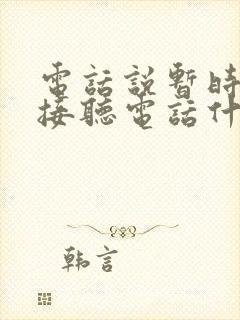 電話説暫時
接聽電話什
韩言